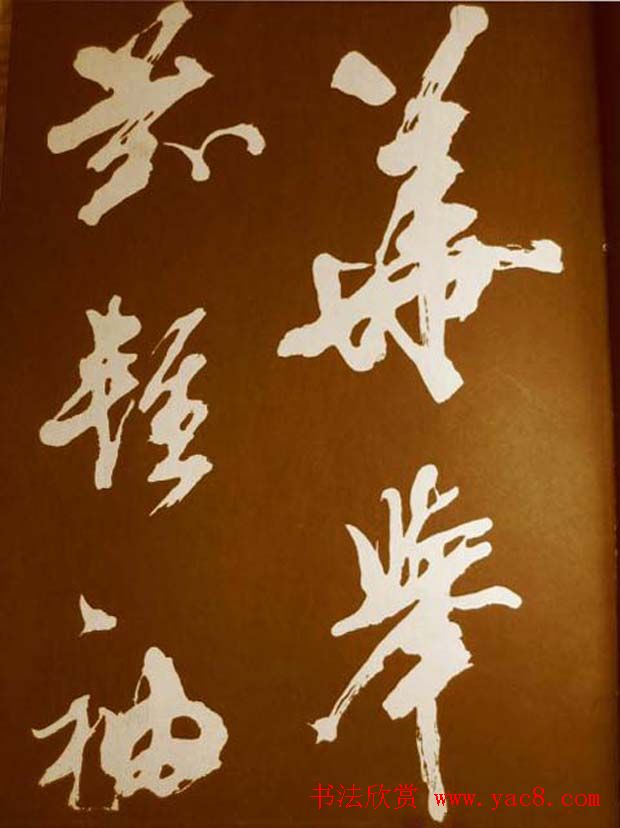 華舉
輕袖
书法欣赏 www.yac8.com